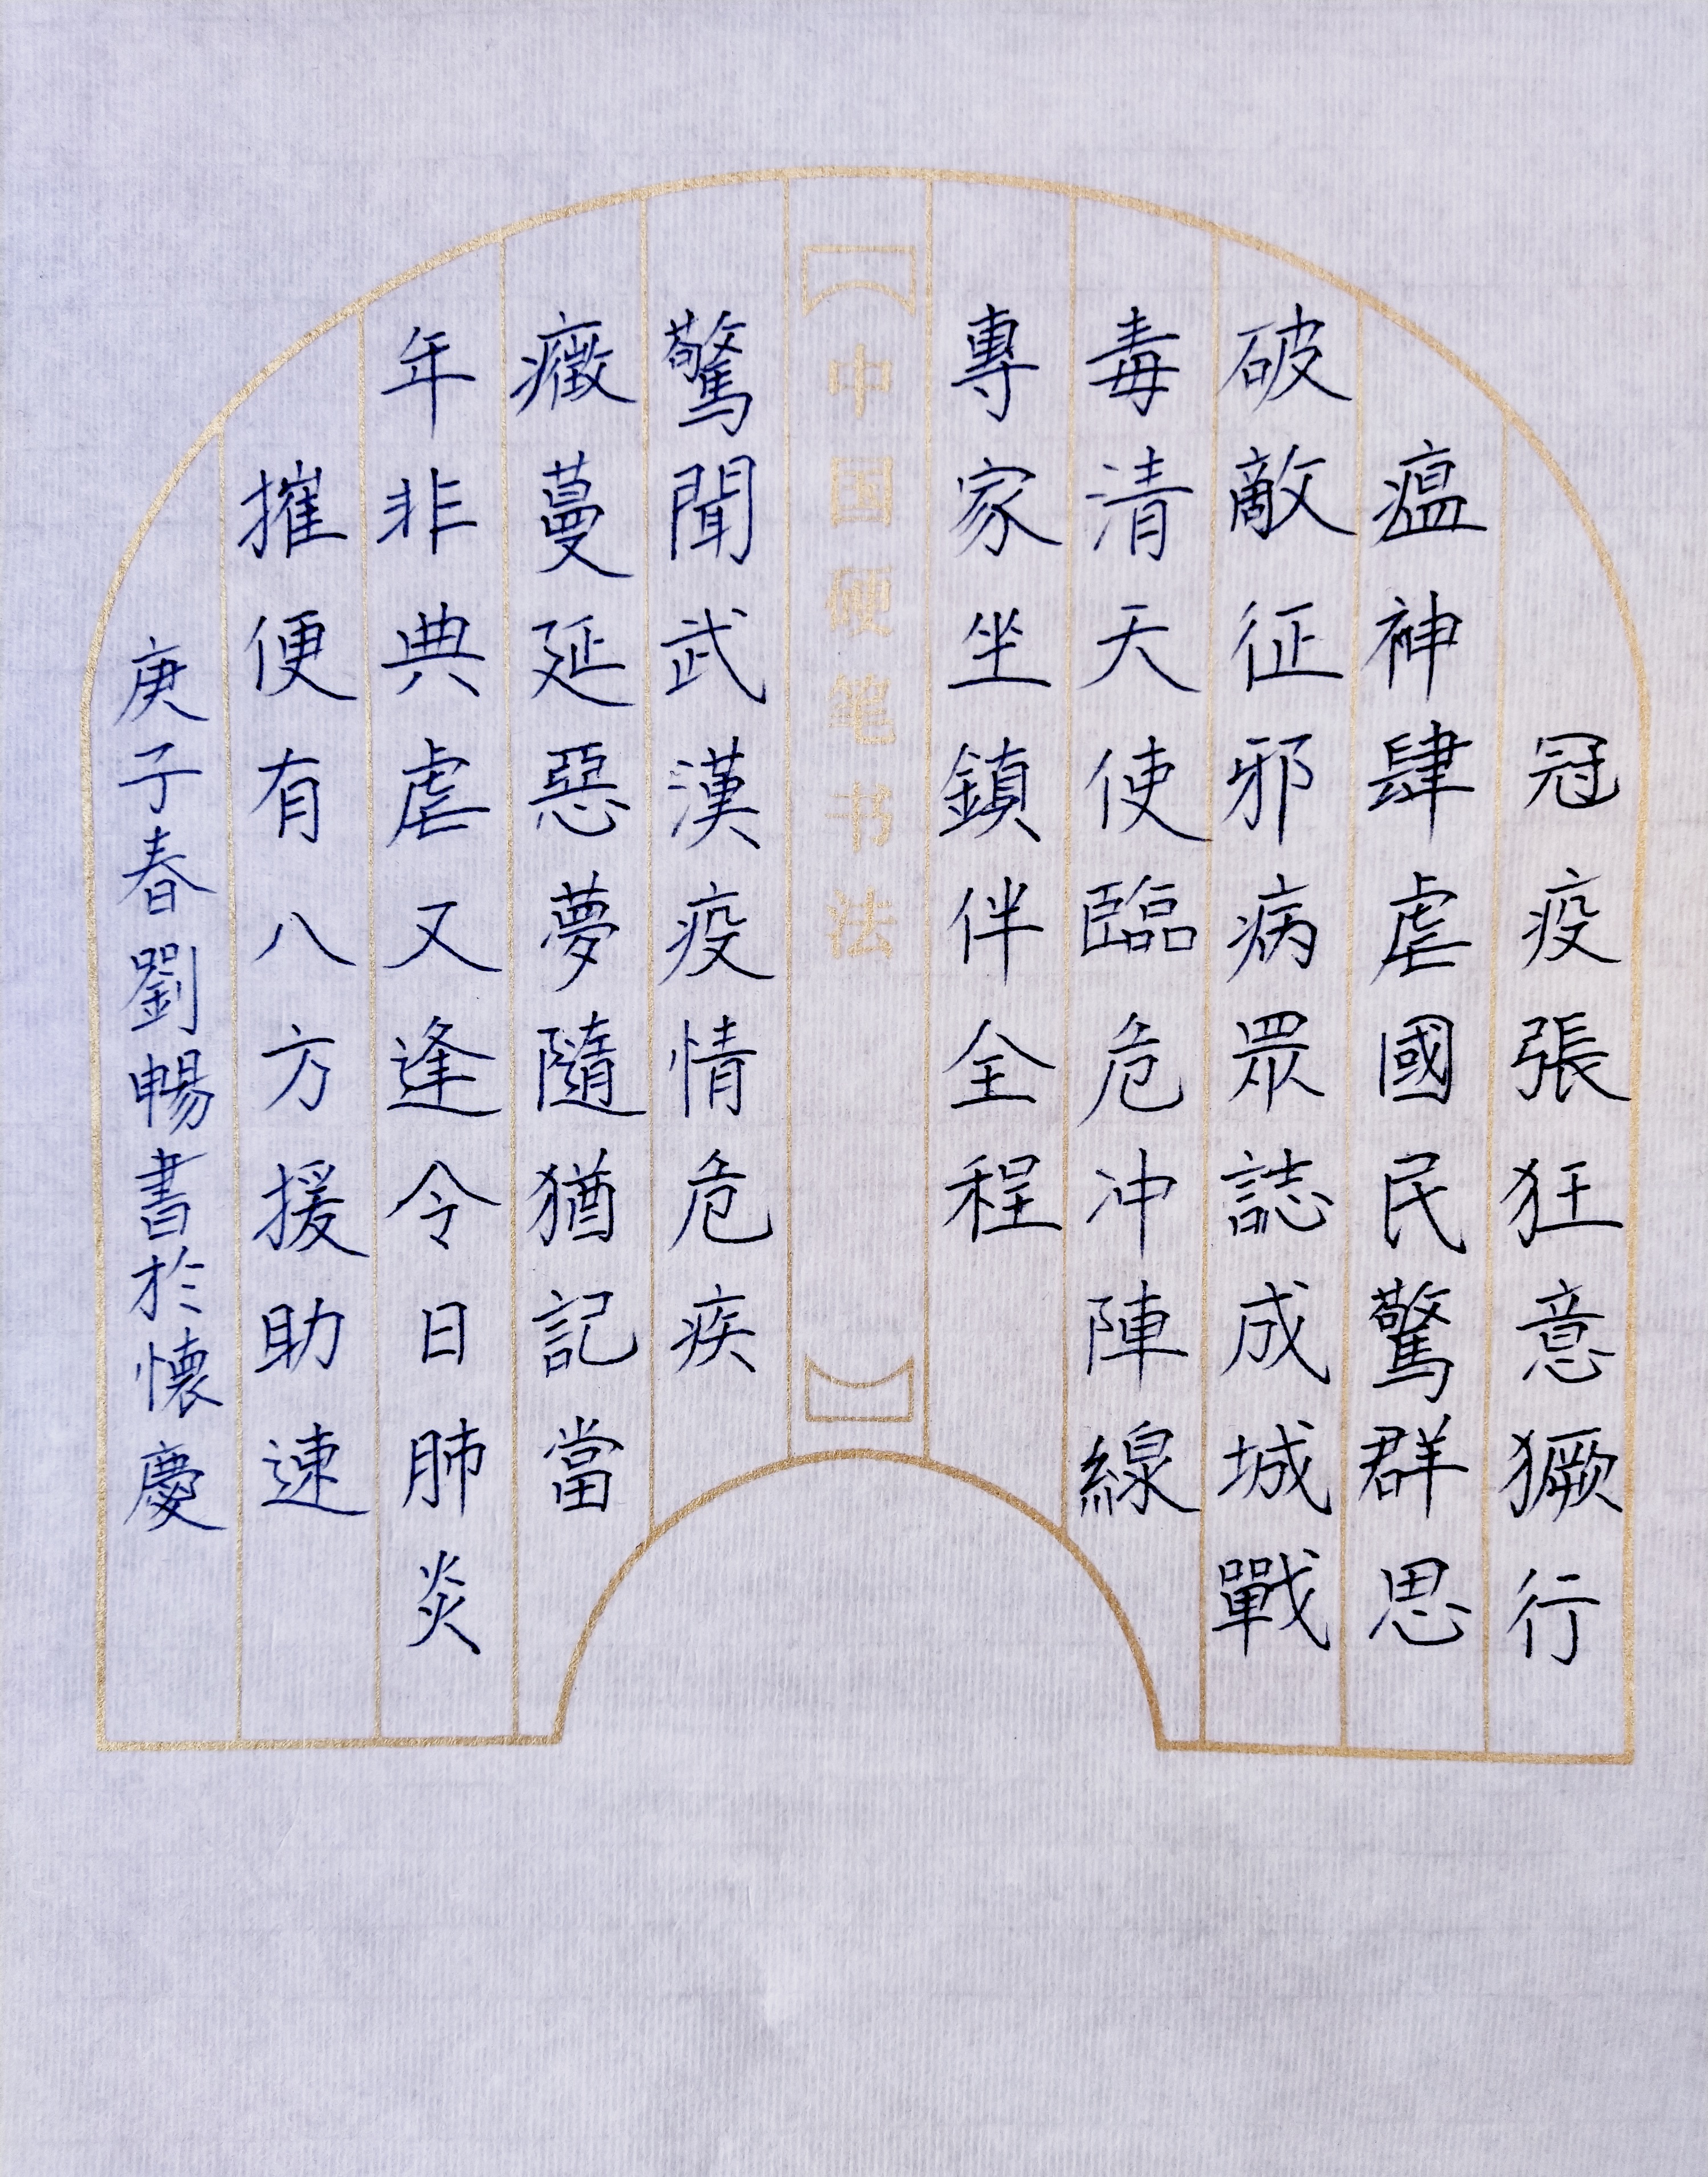 冠疫張狂意獗行
瘟神肆虐國民驚群思
破敵征邪病眾誌成城戰
毒清天使臨危冲陣線
專家坐鎮伴全程
中国硬笔书法
驚聞武漢疫情危疾
癥蔓延惡夢隨猶記當
年非典虐又逢今日肺炎
摧便有八方援助速
庚子春劉暢書於懷慶